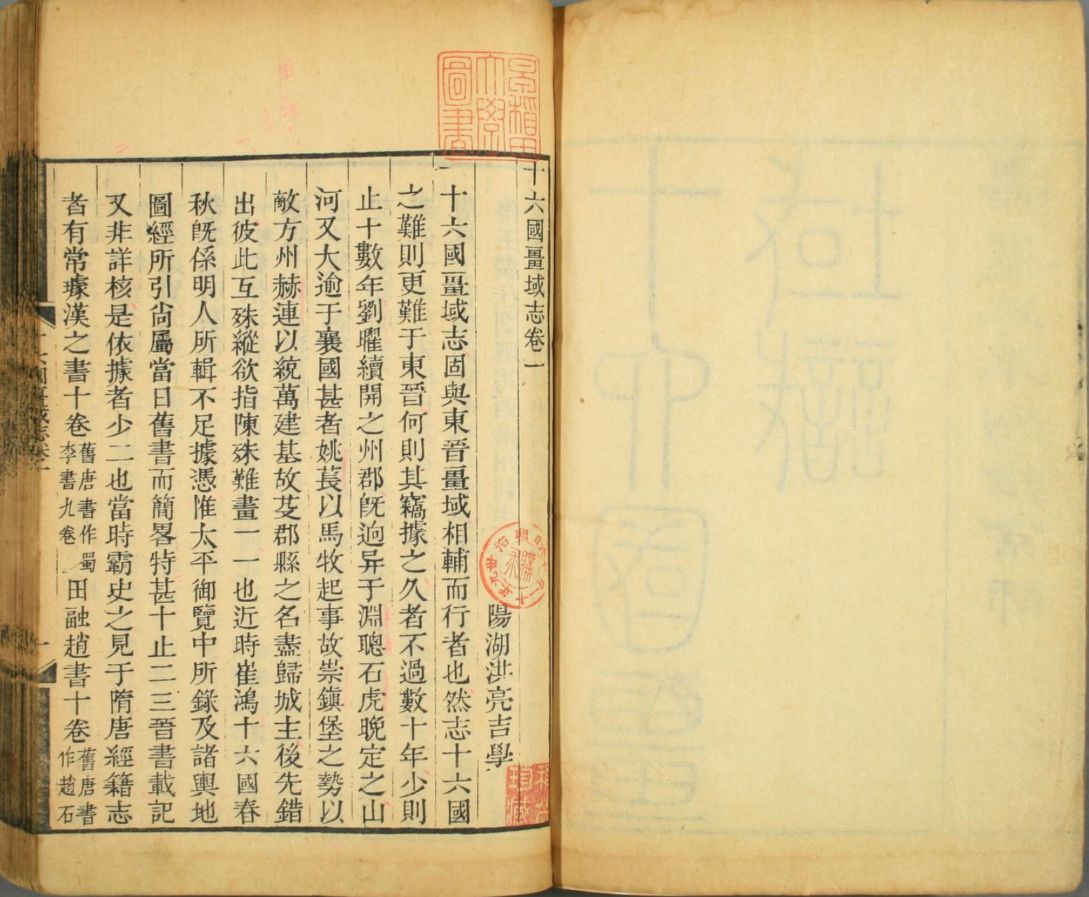 十六國畺域志卷一
陽湖洪亮吉學
十六國畺域志固與東晉畺域相輔而行者也然志十六國
之難則更難于東晉何則其竊據之久者不過數十年少則
止十數年劉曜續開之州郡旣逈异于淵聰石虎晚定之山
河又大逾于襄國甚者姚萇以馬牧起事故崇鎭堡之勢以
敵方州赫連以統萬建基故芟郡縣之名盡歸城主後先錯
出彼此互殊縱欲指陳殊難畫一一也近時崔鴻十六國春
秋旣係明人所輯不足據憑惟太平御覽中所錄及諸輿地
圖經所引尙屬當日舊書而簡畧特甚十止二三晉書載記
又非詳核是依據者少二也當時霸史之見于隋唐經籍志
者有常璩漢之書十卷舊唐書作蜀李書九卷田融趙書十卷舊唐書作趙石
十六國畺域志卷一
一
早稻田大學圖書